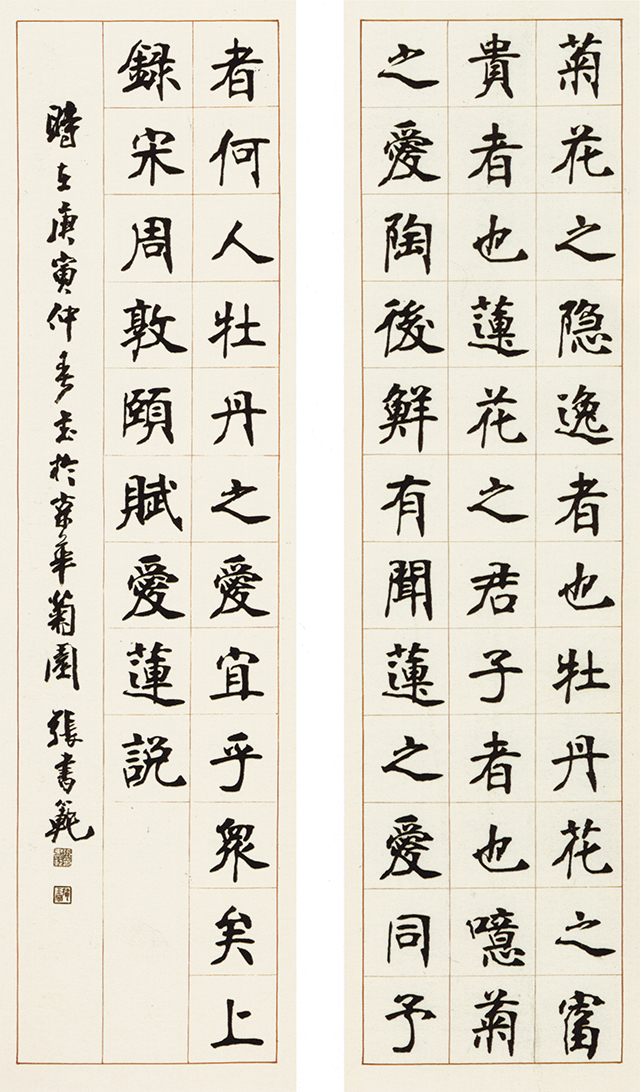 菊花之隐逸者也牡丹花之富
貴者也蓮花之君子者也噫菊
之愛陶後鮮有聞蓮之愛同予
者何人牡丹之愛宜乎衆矣上
録宋周敦頤賦愛蓮説
時在庚寅仲春書於京華菊園 張書範